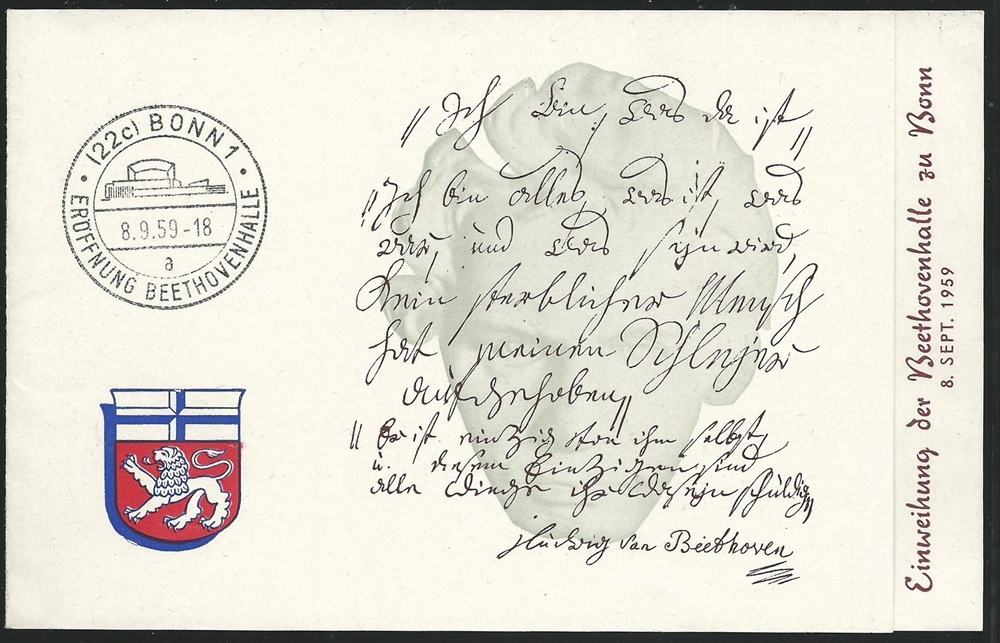 (22c) BONN 1
8.9.59-18
a
ERÖFFNUNG BEETHOVENHALLE
„Ich bin, was da ist„
„Ich bin alles, was ist, was
war, und was seyn wird,
Kein sterblicher Mensch
hat meinen Schleyer
aufgehoben„
„Er ist einzig von ihm selbst,
u. diesem Einzigen sind
alle Dinge ihr Daseyn schuldig„
Ludwig van Beethoven
Einweihung der Beethovenhalle zu Bonn
8. SEPT. 1959